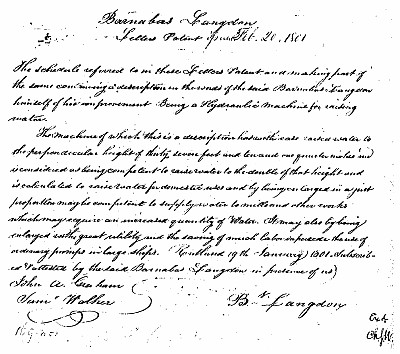 Barnabas Langdon
Letters Patent Feb. 20, 1801
The schedule referred to in these Letters Patent and making part of
the same containing a description in the words of the said Barnabas Langdon
himself of his improvement Being a Hydraulic Machine for raising
water.
The machine of which this is a description has with ease raised water to
the perpendicular height of thirty seven feet and and one quarter inches and
is considered as being competent to raise water to the double of that height and
is calculated to raise water for domestic uses and by being enlarged in a just
proportion may be competent to supply water to mills and other works
which may require an increased quantity of Water. It may also by being
enlarged with great utility and the saving of much labor supersede the use of
ordinary pumps in large ships. Rutland 19th January 1801. Subscrib-
ed & attested by the said Barnabas Langdon in presence of us
John A. Graham
Sam Walker
B Langdon